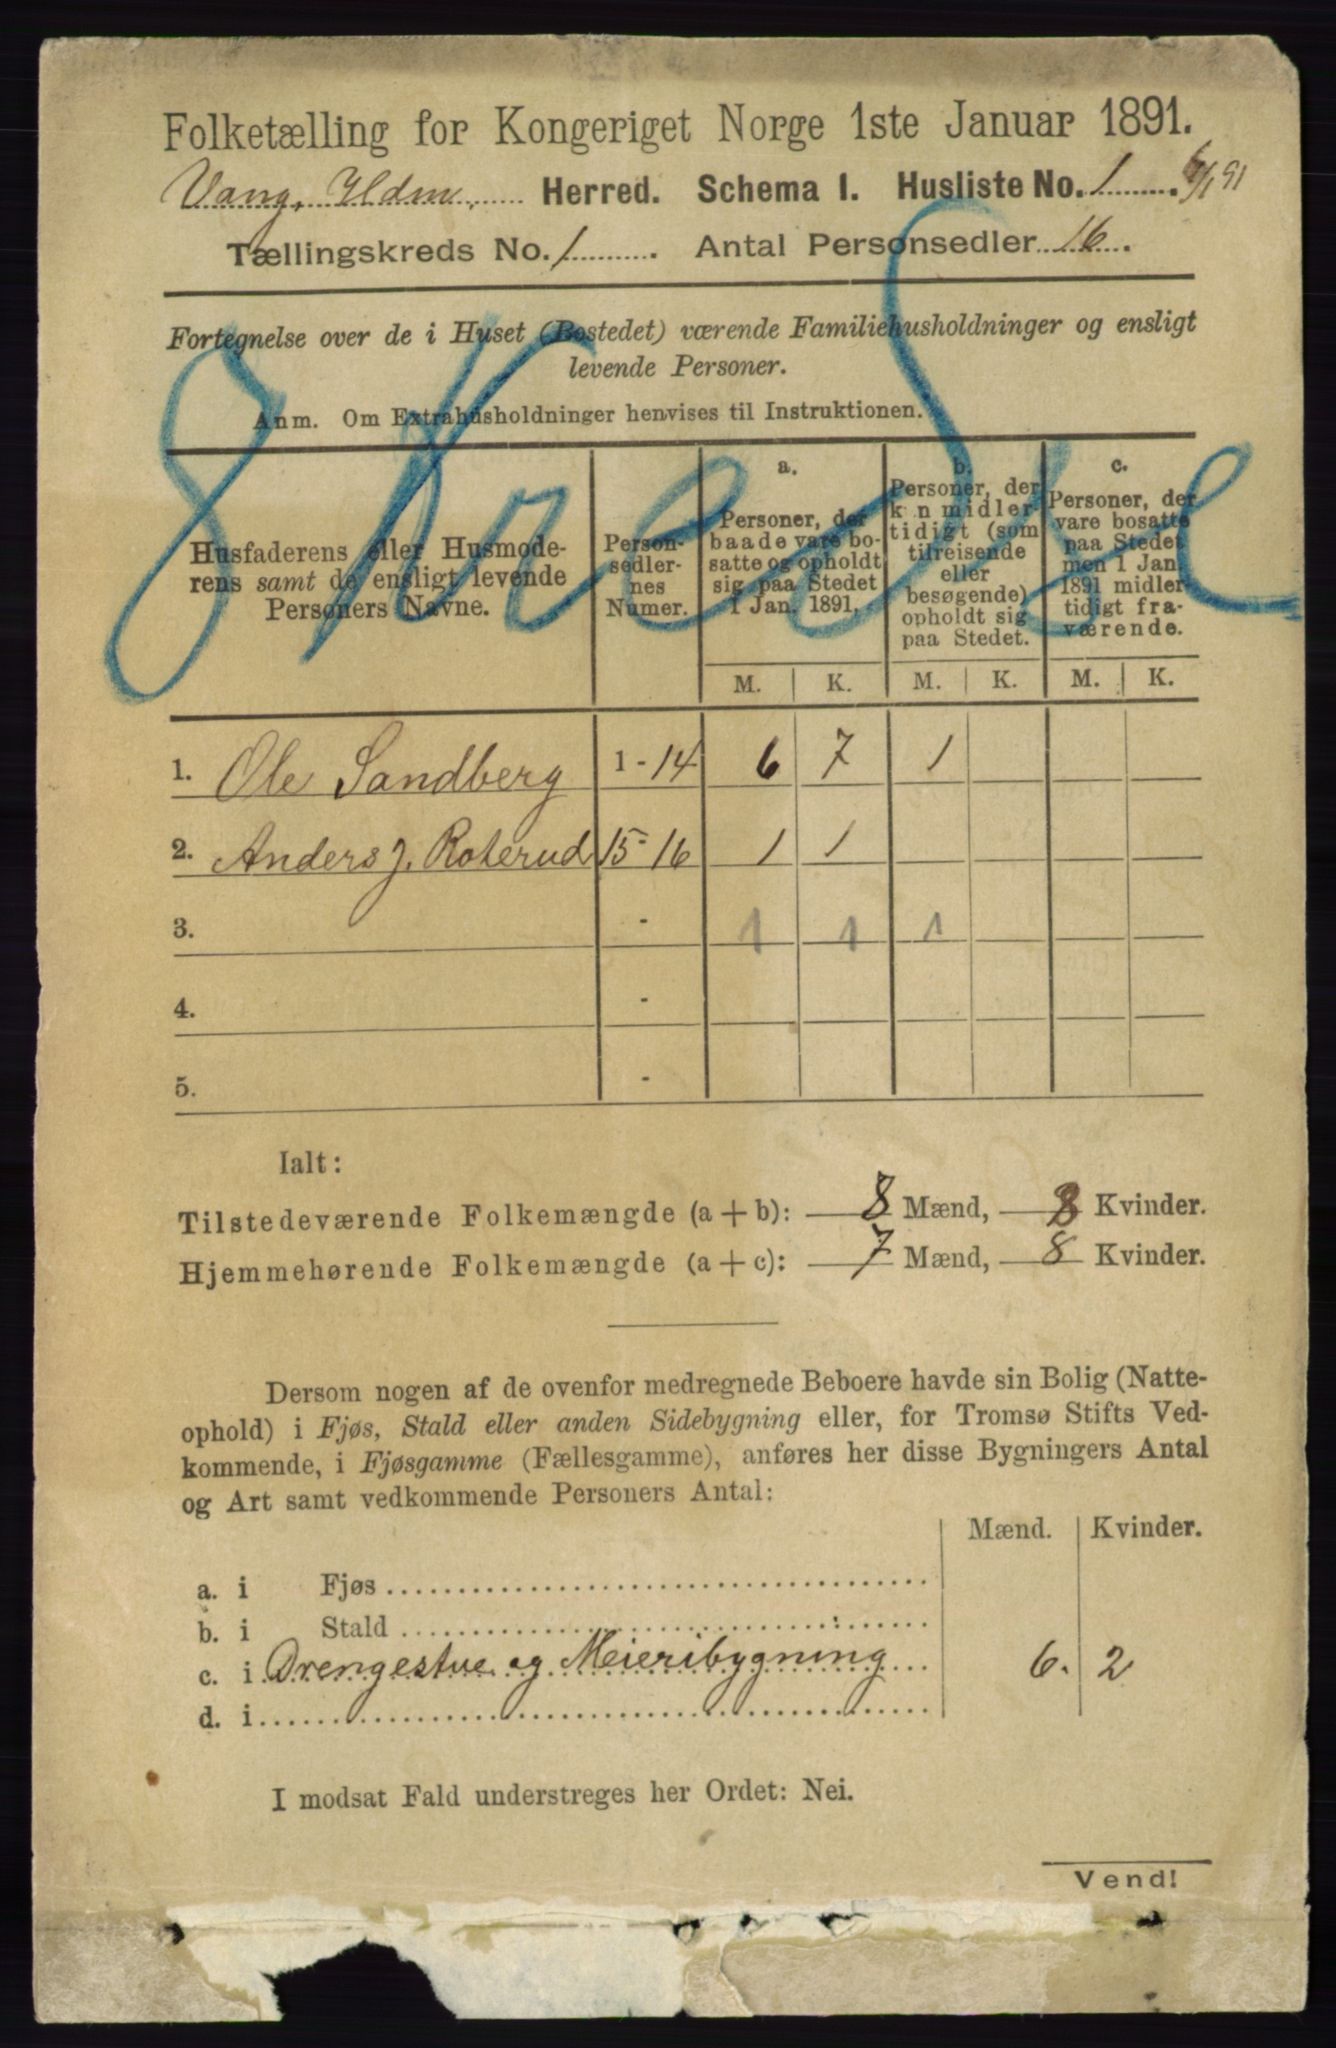 Folketælling for Kongeriget Norge 1ste Januar 1891.
Vang, Hdm. Herred. Schema I. Husliste No. 1. 6/1 91
Tællingskreds No. 1. Antal Personsedler 16.
Fortegnelse over de i Huset (Bostedet) værende Familiehusholdninger og ensligt
levende Personer.
Anm. Om Extrahusholdninger henvises til Instruktionen.
Husfaderens eller Husmode-
rens samt de ensligt levende
Personers Navne.
Person-
sedler-
nes
Numer.
a.
Personer, der
baade vare bo-
satte og opholdt
sig paa Stedet
1 Jan. 1891.
b.
Personer, der
kun midler-
tidigt (som
tilreisende
eller
besøgende)
opholdt sig
paa Stedet.
c.
Personer, der
vare bosatte
paa Stedet
men 1 Jan.
1891 midler-
tidigt fra-
værende.
M. K. M. K. M. K.
1. Ole Sandberg 1 - 14 6 7 1
2. Anders J. Roterud 15 - 16 1 1
3. - 1 1 1
4. -
5. -
Ialt:
Tilstedeværende Folkemængde (a + b): 8 Mænd, 8 Kvinder.
Hjemmehørende Folkemængde (a + c): 7 Mænd, 8 Kvinder.
Dersom nogen af de ovenfor medregnede Beboere havde sin Bolig (Natte-
ophold) i Fjøs, Stald eller anden Sidebygning eller, for Tromsø Stifts Ved-
kommende, i Fjøsgamme (Fællesgamme), anføres her disse Bygningers Antal
og Art samt vedkommende Personers Antal:
Mænd. Kvinder.
a. i Fjøs
b. i Stald
c. i Drengestue og Meieribygning 6. 2
d. i
I modsat Fald understreges her Ordet: Nei.
Vend!